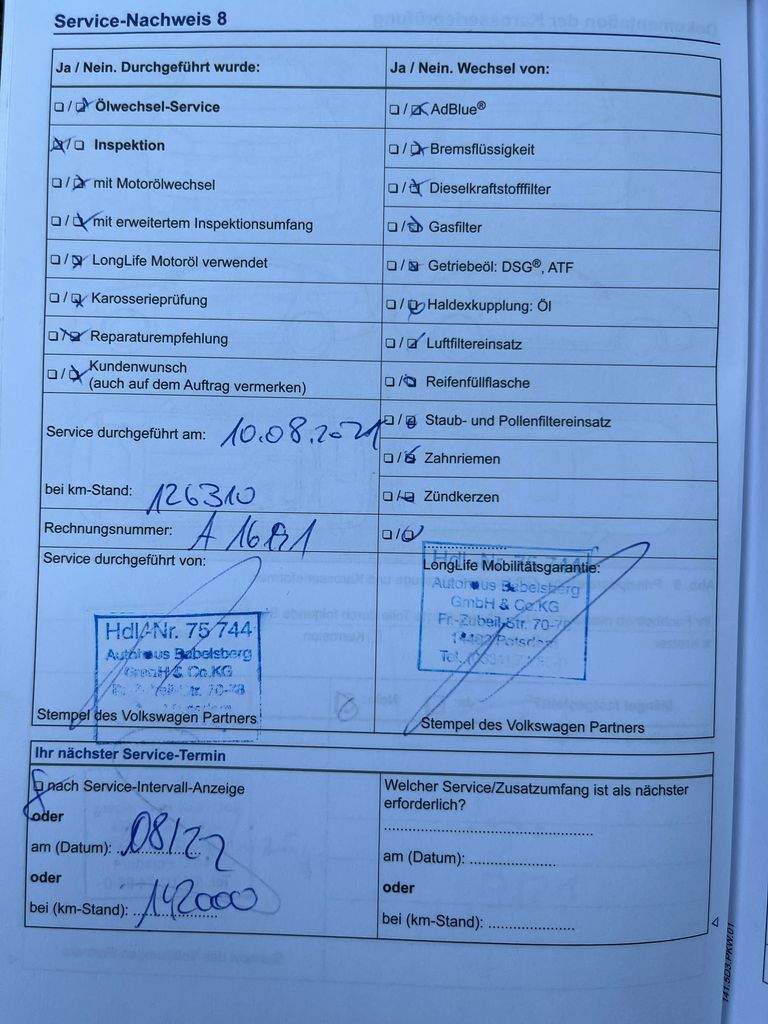 Service-Nachweis 8
Ja / Nein. Durchgeführt wurde:
Ölwechsel-Service
Inspektion
mit Motorölwechsel
mit erweitertem Inspektionsumfang
LongLife Motoröl verwendet
Karosserieprüfung
Reparaturempfehlung
Kundenwunsch
(auch auf dem Auftrag vermerken)
Service durchgeführt am: 10.08.2021
bei km-Stand: 126310
Rechnungsnummer:
Service durchgeführt von:
Hdl.-Nr. 75 744
Autohaus Babelsberg
GmbH & Co.KG
Stempel des Volkswagen Partners
Ja / Nein. Wechsel von:
AdBlue®
Bremsflüssigkeit
Dieselkraftstofffilter
Gasfilter
Getriebeöl: DSG®, ATF
Haldexkupplung: Öl
Luftfiltereinsatz
Reifenfüllflasche
Staub- und Pollenfiltereinsatz
Zahnriemen
Zündkerzen
LongLife Mobilitätsgarantie:
Autohaus Babelsberg
GmbH & Co.KG
Fr.-Zubeil-Str. 70-7
14482 Potsdam
Stempel des Volkswagen Partners
Ihr nächster Service-Termin
nach Service-Intervall-Anzeige
oder
am (Datum): 08/22
oder
bei (km-Stand): 142000
Welcher Service/Zusatzumfang ist als nächster
erforderlich?
am (Datum):
oder
bei (km-Stand):
141.5D3.PKW.01